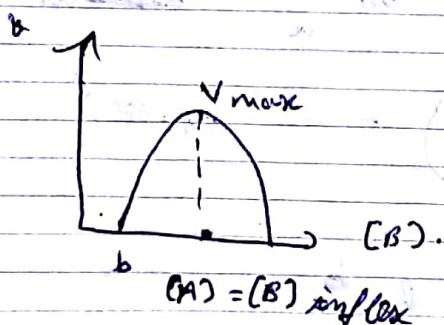 v
V max
[B].
b
[A] = [B] inflex